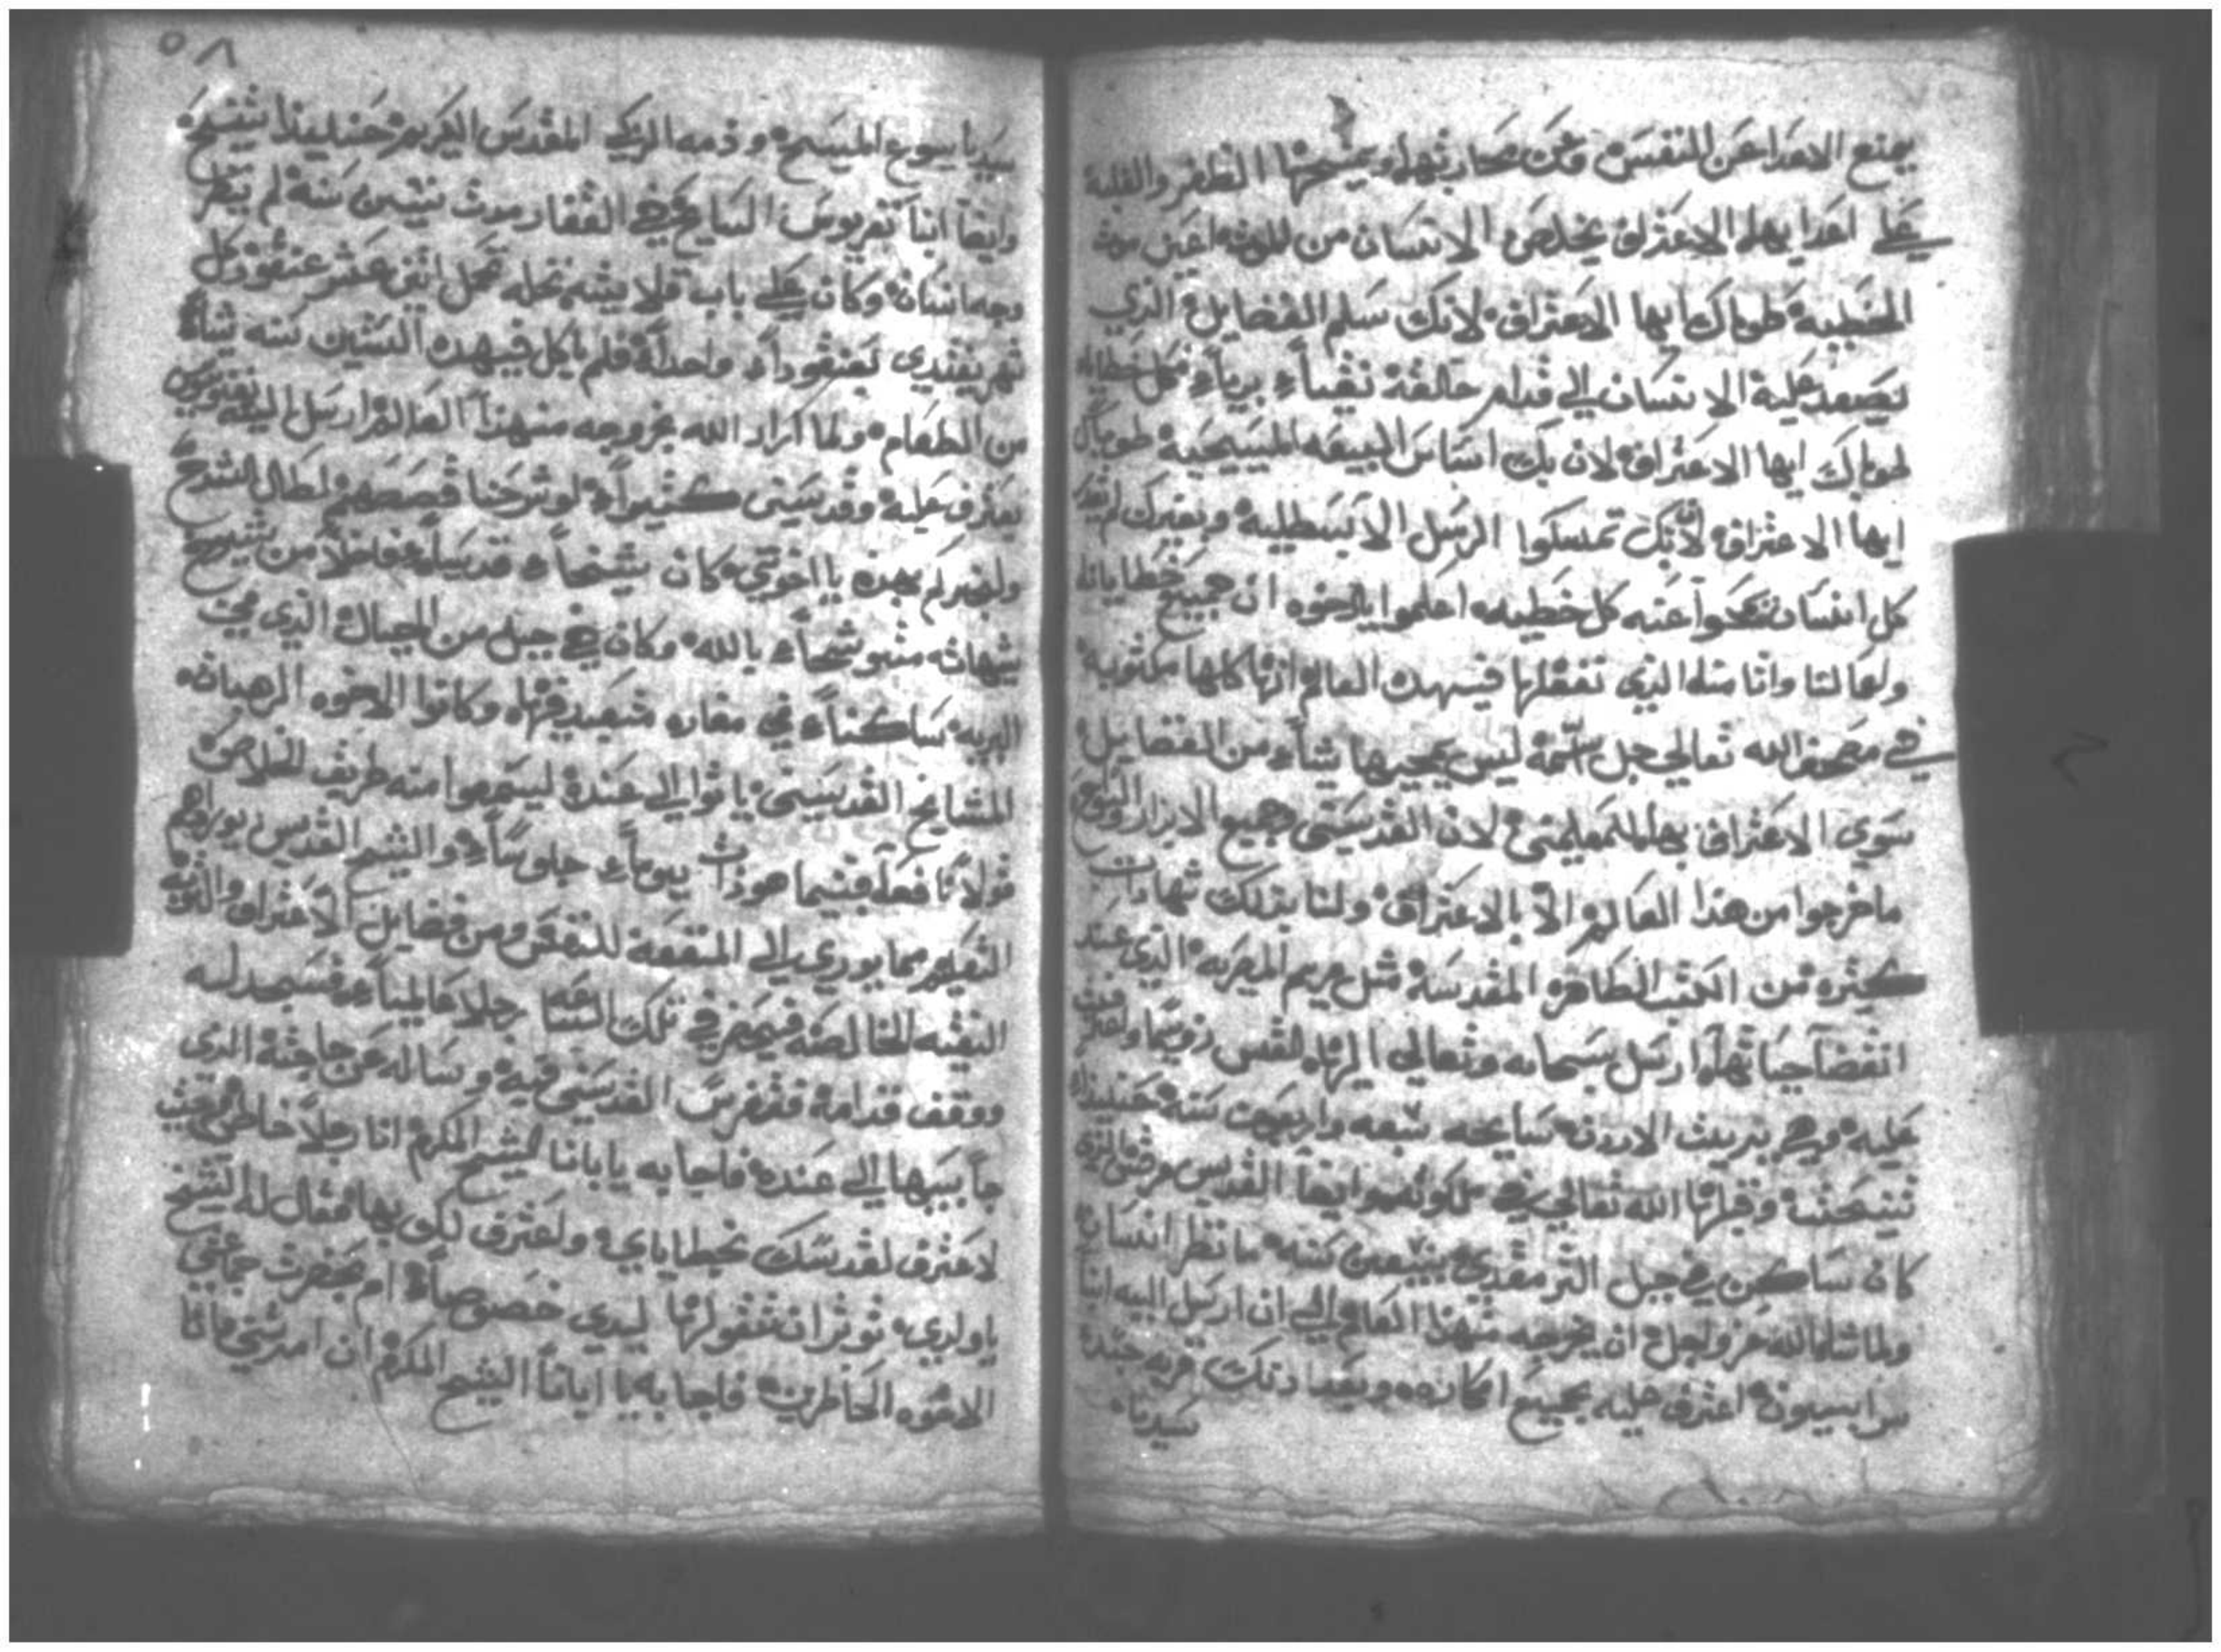 يمنع الاعدا عن النفس وعن محاربتها ويمنحها الظفر والغلبة
علي اعدايها الاعتراف يخلص الانسان من الموت اعني موت
الخطيه طوباك ايها الاعتراف لانك سلم الفضايل الذي
يصعد عليه الانسان الي قدام خالقه نقياً برياً من كل خطايا
طوباك ايها الاعتراف لان بك اساس البيعه المسيحية طوباك
ايها الاعتراف لانك تمسكوا الرسل الا وبغيرك لم يقدر
كل انسان عنه كل خطيه اعلموا يا اخوه ان جميع خطايانا
الذي نفعلها فيهدا العالم انها كلها مكتوبة
في مصحف الله تعالي جل اسمه ليس يمحيها شياً من الفضايل
سوي الاعتراف بها للمعلمين لان القديسين وجميع الابرار
ماخرجوا من هذا العالم الا بالاعتراف ولنا بذلك شهادات
كثيره من الكتب الطاهره المقدسة مثل مريم المصريه الذي عند
انقضا حياتها ارسل سبحانه وتعالي اليها القس زوسيما واعترفت
عليه وهي بريت الاردن سايحه سبعه واربعين سنه حينيذ
تنيحت وقبلها الله تعالي في ملكوته وايضاً القديس مرقس الذي
كان ساكن في جبل الترمقدي سنه ما نظر انسان
ولما شا الله عز وجل ان يخرجه منهذا العالم الي ان ارسل اليه انبا
سرابيون اعترف عليه بجميع افكاره وبعد ذلك قربه جسد
سيدنا
٥٨
سيدنا يسوع المسيح ودمه الزكي المقدس الكريم حينيذ تنيح
وايضاً انبا السايح في القفار ستين سنه لم ينظر
وجه انسان وكان علي باب قلايته نخله تحمل اثنى عشر عنقود كل
شهر يفتدي بعنقوداً واحداً فلم ياكل فيهده الستين سنه شياً
من الطعام ولما اراد الله بخروجه منهذا العالم ارسل اليه
يعترف عليه وقديسين كثيراً لو شرحنا قصصهم لطال الشرح
ولنخبركم بهده يا اخوتي كان شيخاً قديساً فاضلاً من شيوخ
شيهات متوشحاً بالله وكان في جبل من الجبال الذي في
البريه ساكناً في مغاره منفرد فيها وكانوا الاخوه الرهبان
المشايخ القديسين ياتوا الي عنده ليسمعوا منه طريق الخلاص
قولاً وفعلاً فبينما هو ذات يوماً جالساً والشيخ القديس يوراهم
التعليم مما يودي الي المنفعة للنفس ومن فضايل الاعتراف والتوبه
النقيه الخالصة فحضر في تلك الساعه رجلاً عالمياً فسجد له
ووقف قدامه فتفرس القديس فيه وساله عن حاجته الذي
جا بسببها الي عنده فاجابه يا ابانا الشيخ المكرم انا رجلاً خاطي جيت
لاعترف لقدسك بخطاياي واعترف لك بها فقال له الشيخ
ياولدي توثر ان تقولها ليدي خصوصاً ام بحضرت جماعتي
الاخوه الحاضرين فاجابه يا ابانا الشيخ المكرم ان امرتني فانا